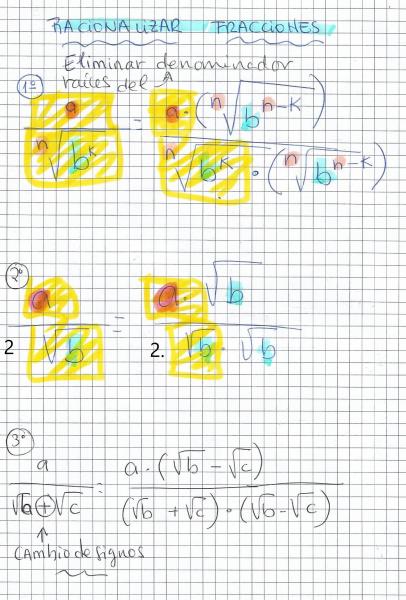 RACIONALIZAR FRACCIONES
Eliminar denominador
raíces del
1º
a/ⁿ√bᵏ = a·(ⁿ√bⁿ⁻ᵏ)/ⁿ√bᵏ · (ⁿ√bⁿ⁻ᵏ)
2º
a/2√b = a·√b/2.√b · √b
3º
a/√b+√c = a·(√b-√c)/(√b +√c)·(√b-√c)
CAMbio de signos